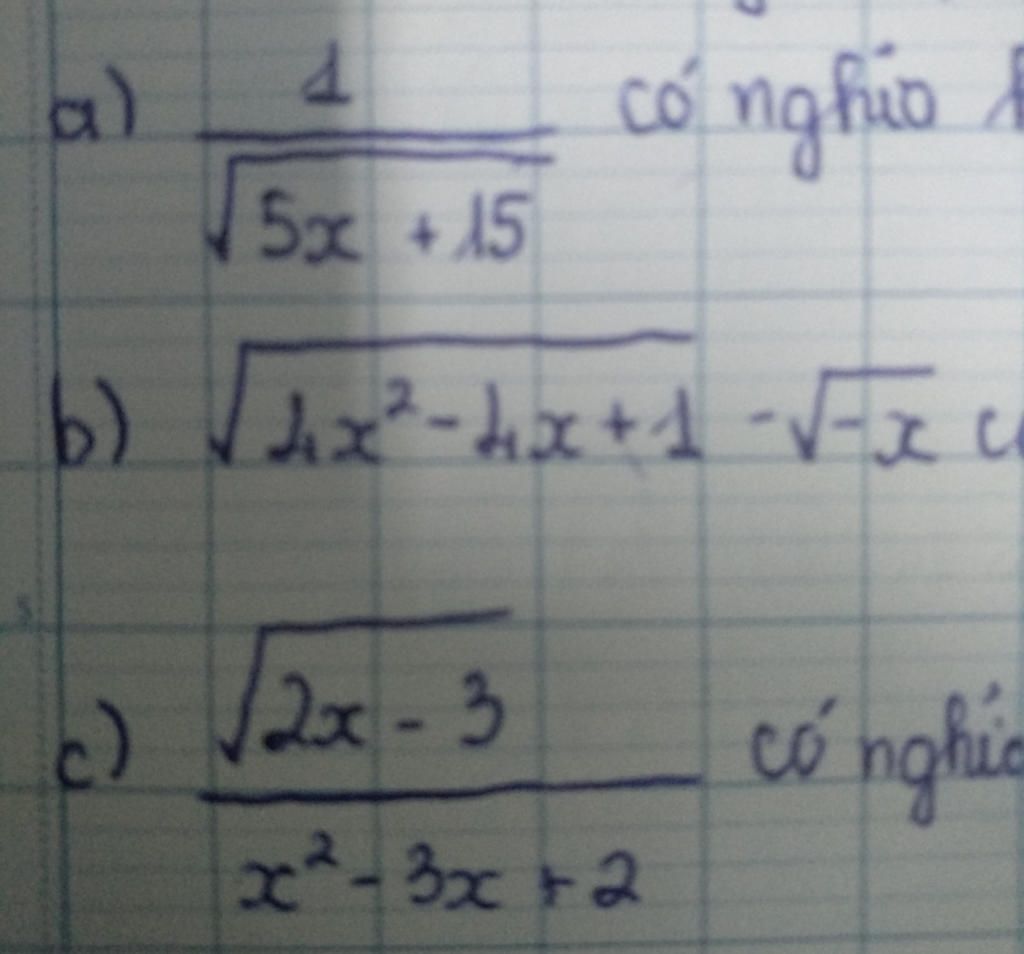 a) \frac{1}{\sqrt{5x + 15}} có nghĩa
b) \sqrt{4x² - 4x + 1} - \sqrt{-x}
c) \frac{\sqrt{2x - 3}}{x² - 3x + 2} có nghĩa